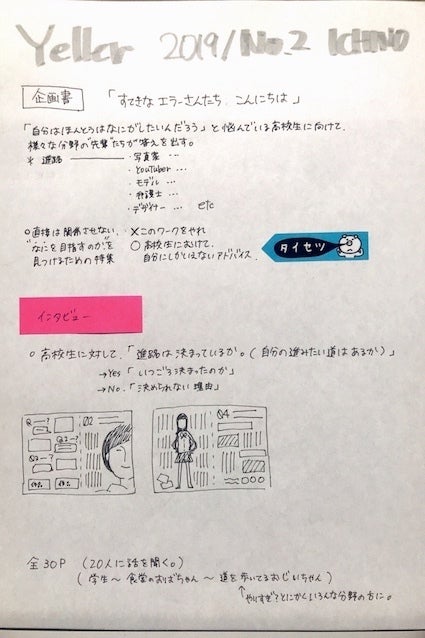 Yeller 2019/No.2 ICHINO
企画書 「すてきな エラーさんたち、こんにちは」
「自分はほんとうはなにがしたいんだろう」と悩んでいる高校生に向けて、
様々な分野の"先輩"たちが答えを出す。
* 進路 ・写真家 …
・YouTuber …
・モデル …
・弁護士 …
・デザイナー … etc
○直接は関係させない、
"なにを目指すのか"を
見つけるための特集
×このワークをやれ
○高校生にむけて、
自分にしかいえないアドバイス。
タイセツ
インタビュー
○ 高校生に対して、「進路は決まっているか。(自分の進みたい道はあるか)」
→Yes 「いつごろ決まったのか」
→No. 「決められない理由」
Q2
Q4
全30P (20人に話を聞く。)
(学生〜 食堂のおばちゃん 〜 道を歩いてるおじいちゃん)
↑やりすぎ?とにかくいろんな分野の方に。